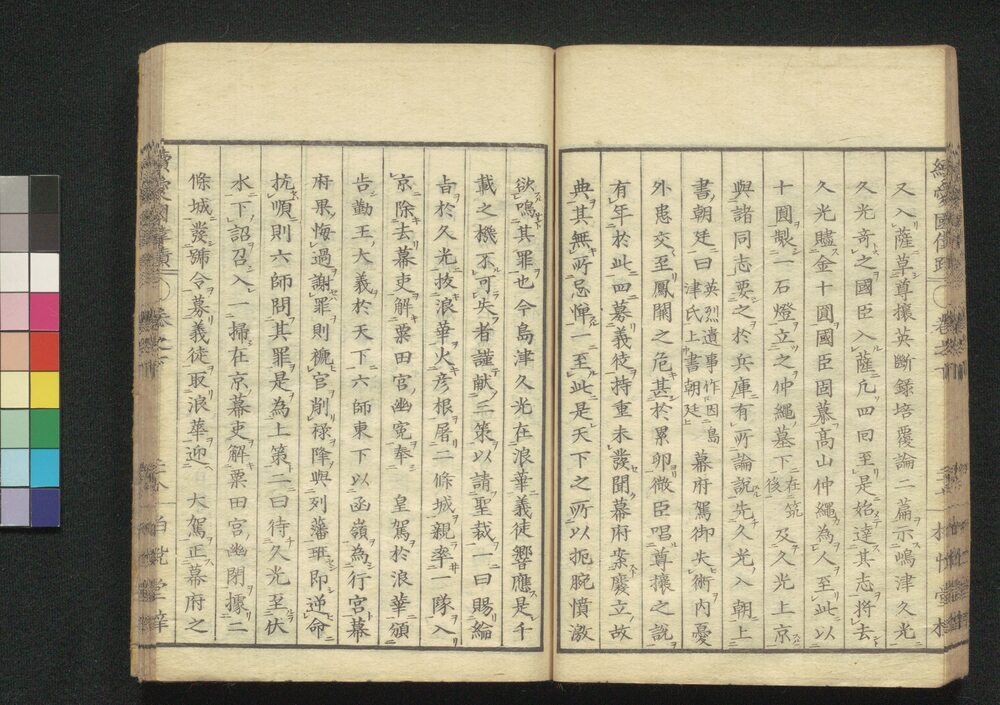 又入薩草尊攘英斷録培覆論二篇示嶋津久光
久光奇之國臣入薩凢四回至是始達其志將去
久光贐金十圓國臣固慕髙山仲繩為人至此以
十圓製一石燈立之仲繩墓下在筑後及久光上京
與諸同志要之於兵庫有所論説先久光入朝上
書朝廷曰英烈遺事作因島津氏上書朝廷幕府駕御失術内憂
外患交至鳳闕之危甚於累卵微臣唱尊攘之説
有年於此四募義徒持重未發聞幕府棄慶立故
典其無所忌憚一至此是天下之所以扼腕憤激
欲鳴其罪也今島津久光在浪華義徒響應是千
載之機不可失者謹献三策以請聖裁一曰賜綸
旨於久光抜浪華火彦根屠二條城親率一隊入
京除去幕吏解粟田宮幽寃奉 皇駕於浪華頒
告勤王大義於天下六師東下以函嶺為行宮幕
府果悔過謝罪則褫官削禄降與列藩班即逆命
抗順則六師問其罪是為上策二曰待久光至伏
水下詔召入一掃在京幕吏解粟田宮幽閉據二
條城發號令募義徒取浪華迎 大駕正幕府之